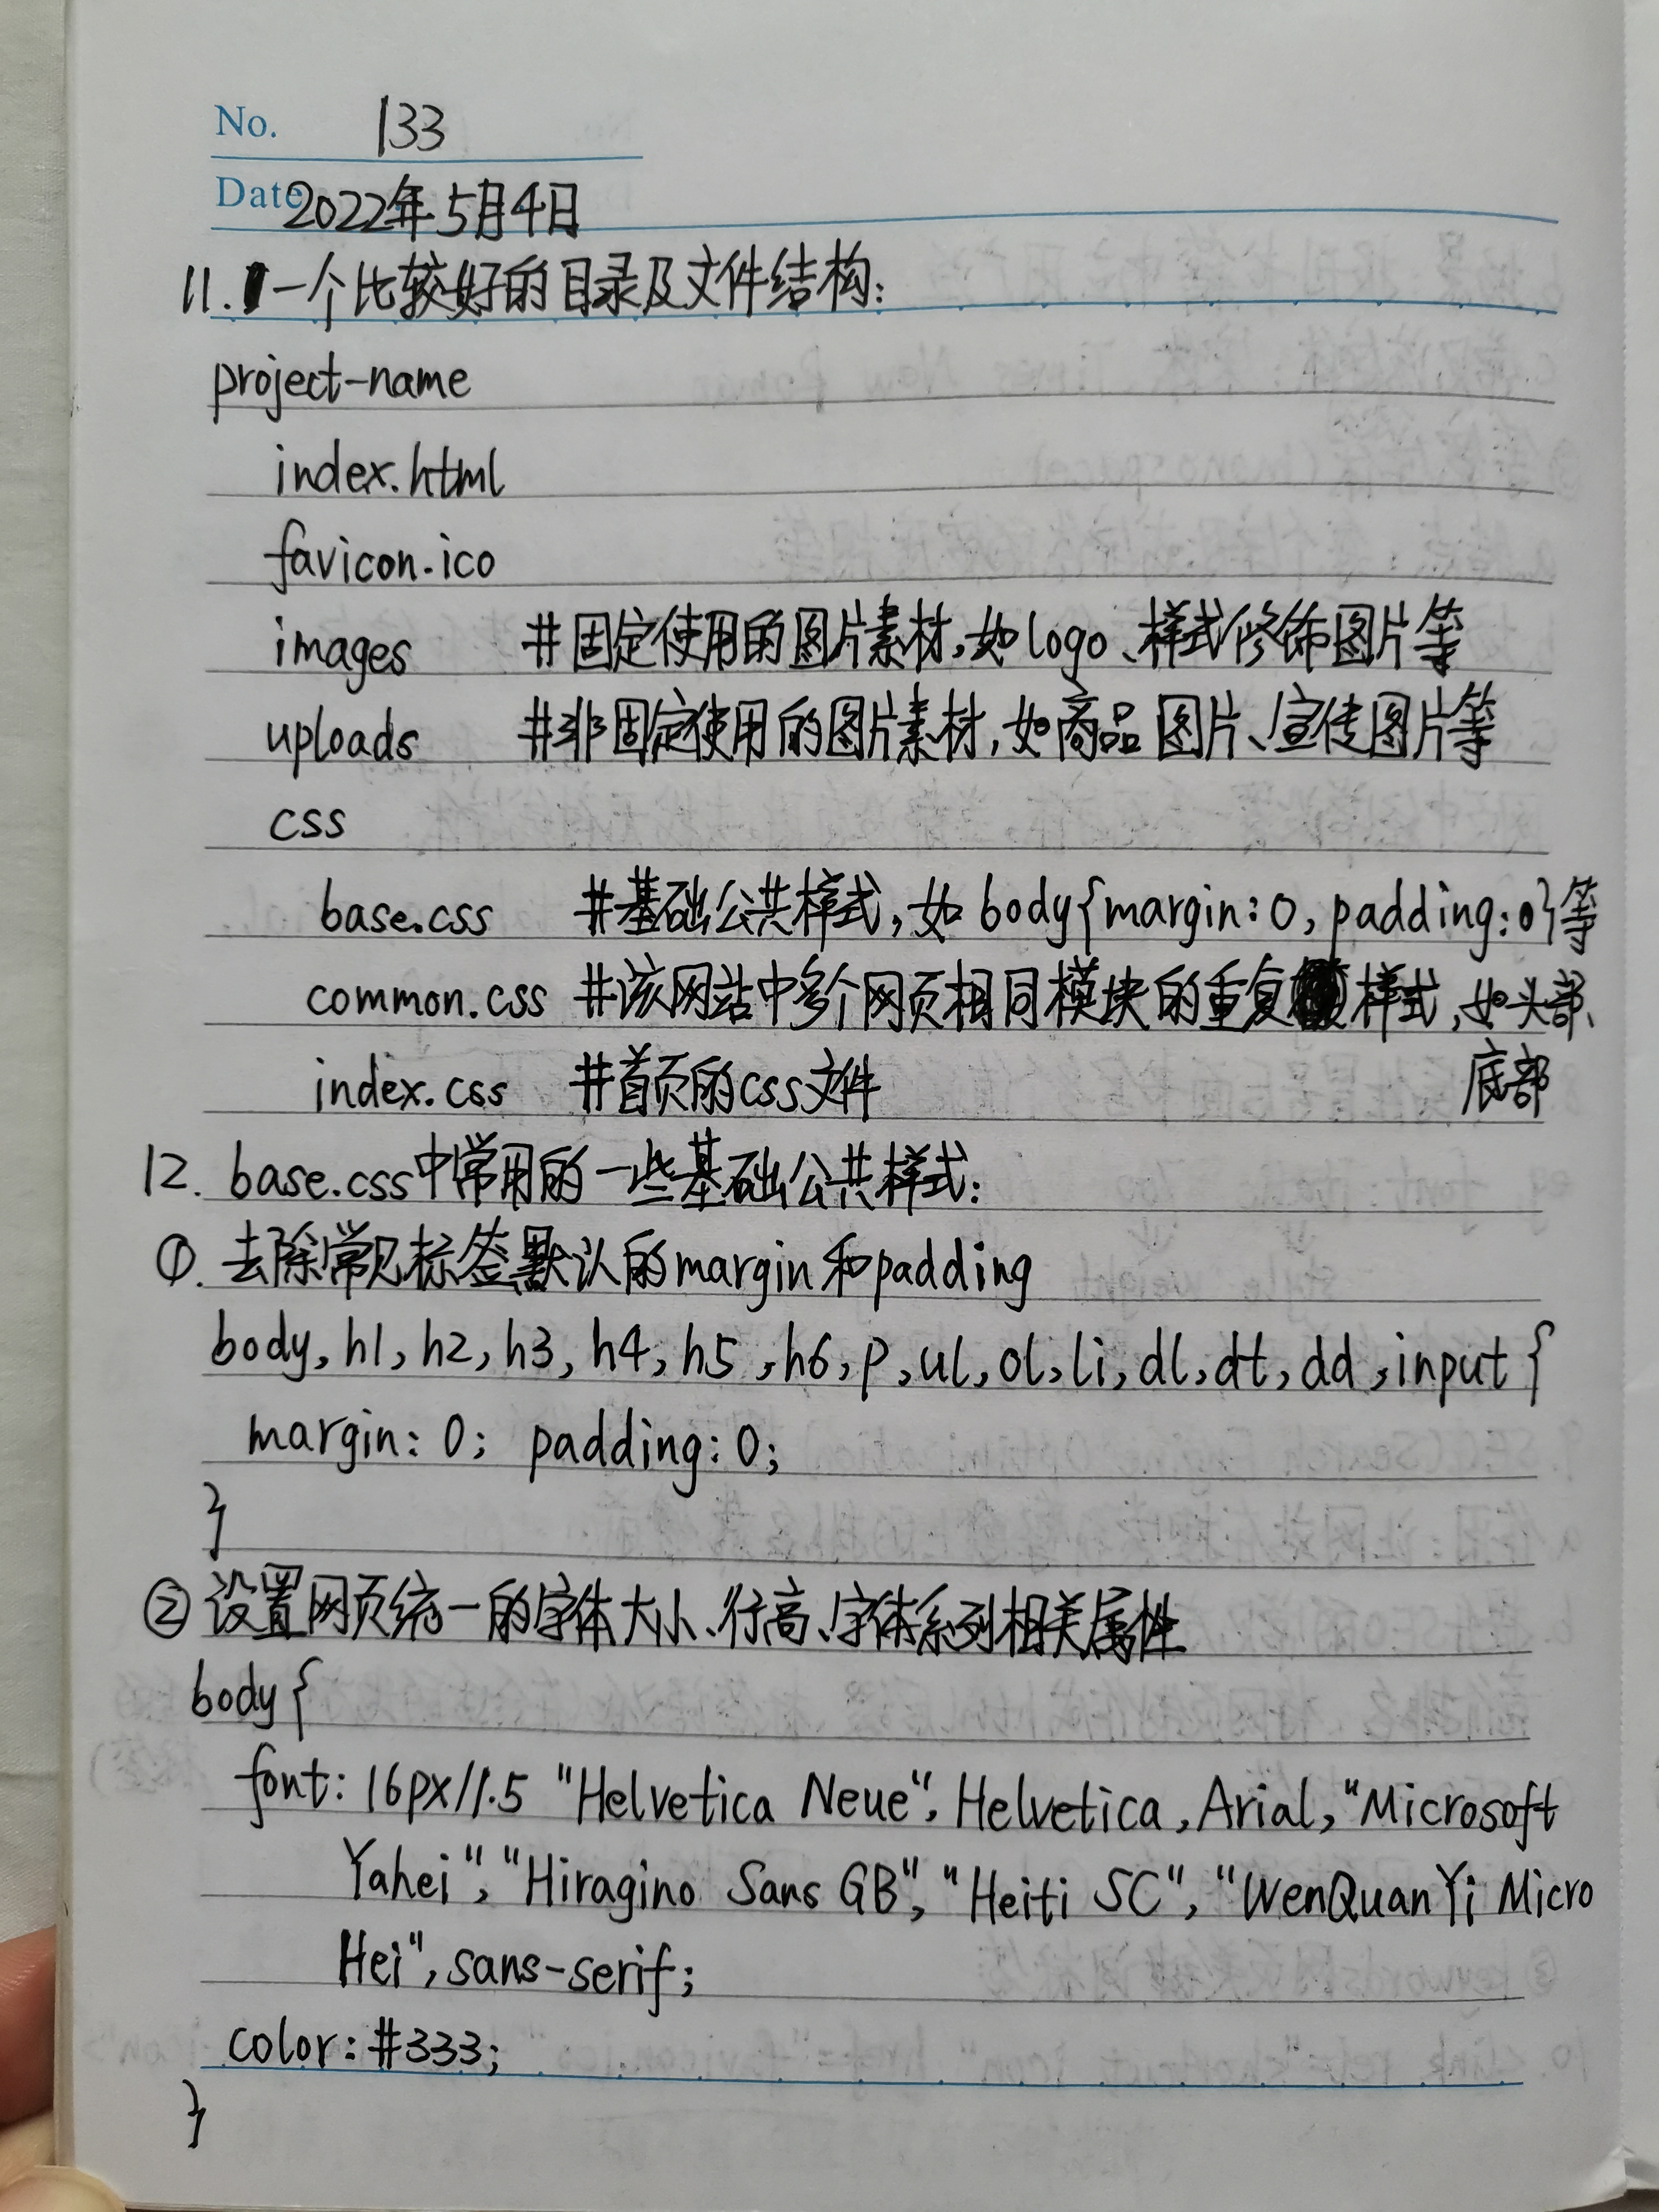 No. 133
Date 2022年5月4日
11. 一个比较好的目录及文件结构:
project-name
index.html
favicon.ico
images #固定使用的图片素材,如logo、样式修饰图片等
uploads #非固定使用的图片素材,如商品图片、宣传图片等
css
base.css #基础公共样式,如body{margin:0, padding:0}等
common.css #该网站中多个网页相同模块的重复样式,如头部、
index.css #首页的css文件 底部
12. base.css中常用的一些基础公共样式:
①. 去除常见标签默认的margin和padding
body, h1, h2, h3, h4, h5, h6, p, ul, ol, li, dl, dt, dd, input {
margin: 0; padding: 0;
}
② 设置网页统一的字体大小、行高、字体系列相关属性
body {
font: 16px/1.5 "Helvetica Neue", Helvetica, Arial, "Microsoft
Yahei", "Hiragino Sans GB", "Heiti SC", "WenQuanYi Micro
Hei", sans-serif;
color: #333;
}